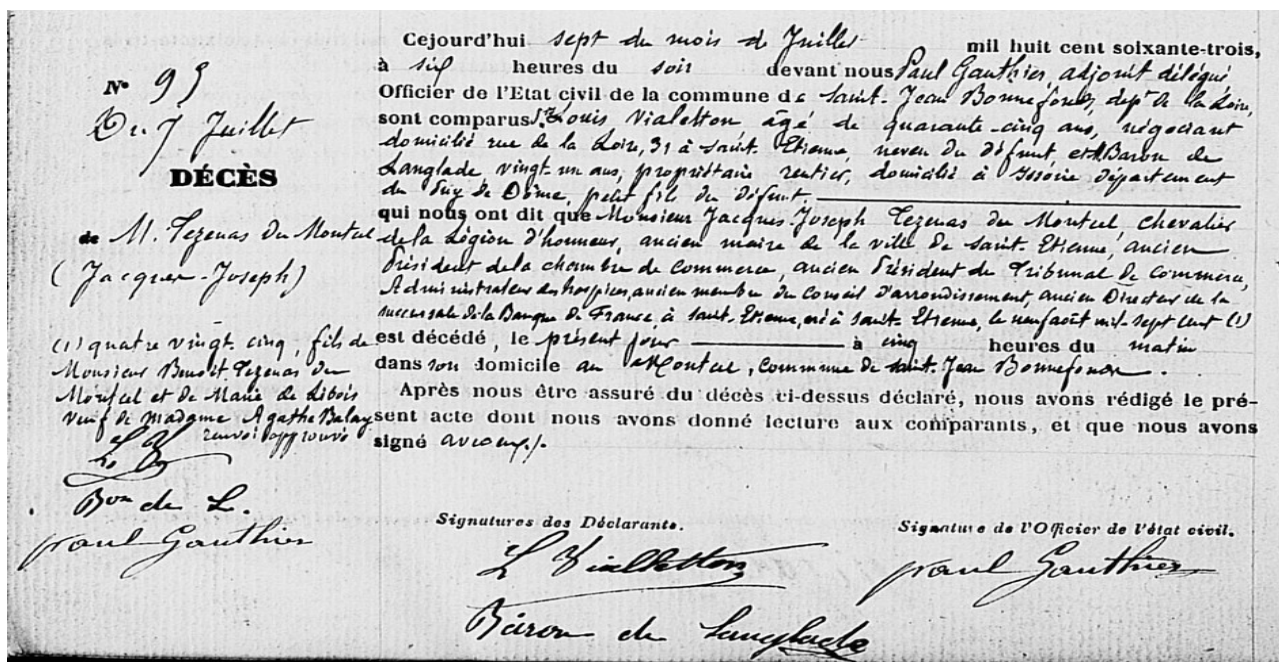 Nº 95
Du 7 Juillet
DÉCÈS
de M. Tezenas du Montcel
(Jacques-Joseph)
(1) quatre vingt cinq, fils de
Monsieur Benoit Tezenas du
Montcel et de Marie de Libois
veuf de madame Agathe Balay
renvoi approuvé
L. V.
Bon de L.
paul Gauthier
Cejourd'hui sept du mois de Juillet mil huit cent soixante-trois,
à six heures du soir devant nous Paul Gauthier adjoint délégué
Officier de l'Etat civil de la commune de Saint-Jean Bonnefonds, dept de la Loire,
sont comparus Louis Vialetton agé de quarante-cinq ans, négociant
domicilié rue de la Loire, 31 à Saint-Etienne, neveu du défunt, et Baron de
Langlade vingt-un ans, propriétaire rentier, domicilié à Issoire département
du Puy de Dôme, petit fils du défunt.
qui nous ont dit que Monsieur Jacques Joseph Tezenas du Montcel, chevalier
de la Légion d'honneur, ancien maire de la ville de Saint-Etienne, ancien
Président de la chambre de Commerce, ancien Président du Tribunal de Commerce,
Administrateur des hospices, ancien membre du Conseil d'arrondissement, ancien Directeur de la
succursale de la Banque de France à Saint-Etienne, né à Saint-Etienne, le neuf août mil-sept cent (1)
est décédé, le présent jour à cinq heures du matin
dans son domicile au Montcel, Commune de Saint-Jean Bonnefonds.
Après nous être assuré du décès ci-dessus déclaré, nous avons rédigé le pré-
sent acte dont nous avons donné lecture aux comparants, et que nous avons
signé avec eux.
Signatures des Déclarants.
Signature de l'Officier de l'état civil.
L Vialletton
paul Gauthier
Baron de Langlade